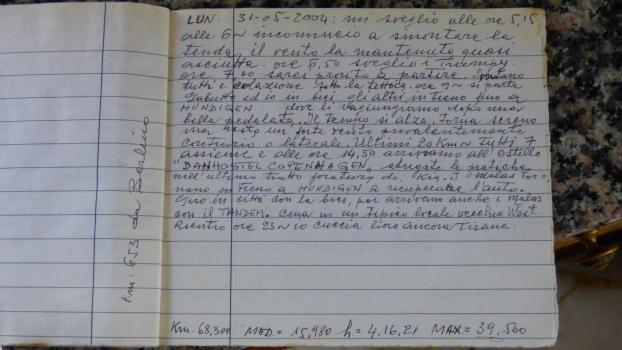 LUN. 31-05-2004: mi sveglio alle ore 5,15
alle 6~ incomincio a smontare la
tenda, il vento la mantenuta quasi
asciutta. ore 6,50 sveglio i
ore 7.00 sarei pronto a partire.
tutti e colazione sotto la tettoia. ore 9~ si parte
ed io in bici gli altri in treno fino a
HUNDIGEN dove li raggiungiamo dopo una
bella pedalata. Il tempo si alza, torna sereno
ma resta un forte vento prevalentemente
contrario o laterale. Ultimi 20 Km~ tutti 7
assieme e alle ore 14,50 arriviamo all'Ostello
"DANHOSTEL COPENHAGEN", sbrigate le pratiche
nell'ultimo tratto foratura di I Malas tor-
nano in treno a HUNDIGEN a ricuperare l'auto.
Giro in città con la bici, poi arrivano anche i Malas
con il TANDEM. Cena in un tipico locale vecchio West.
Rientro ore 23~ io cuccia loro ancora Tisane.
Km. 653 da Berlino
Km. 68,300 MED. = 15,980 h = 4,16,21 MAX. = 39,500